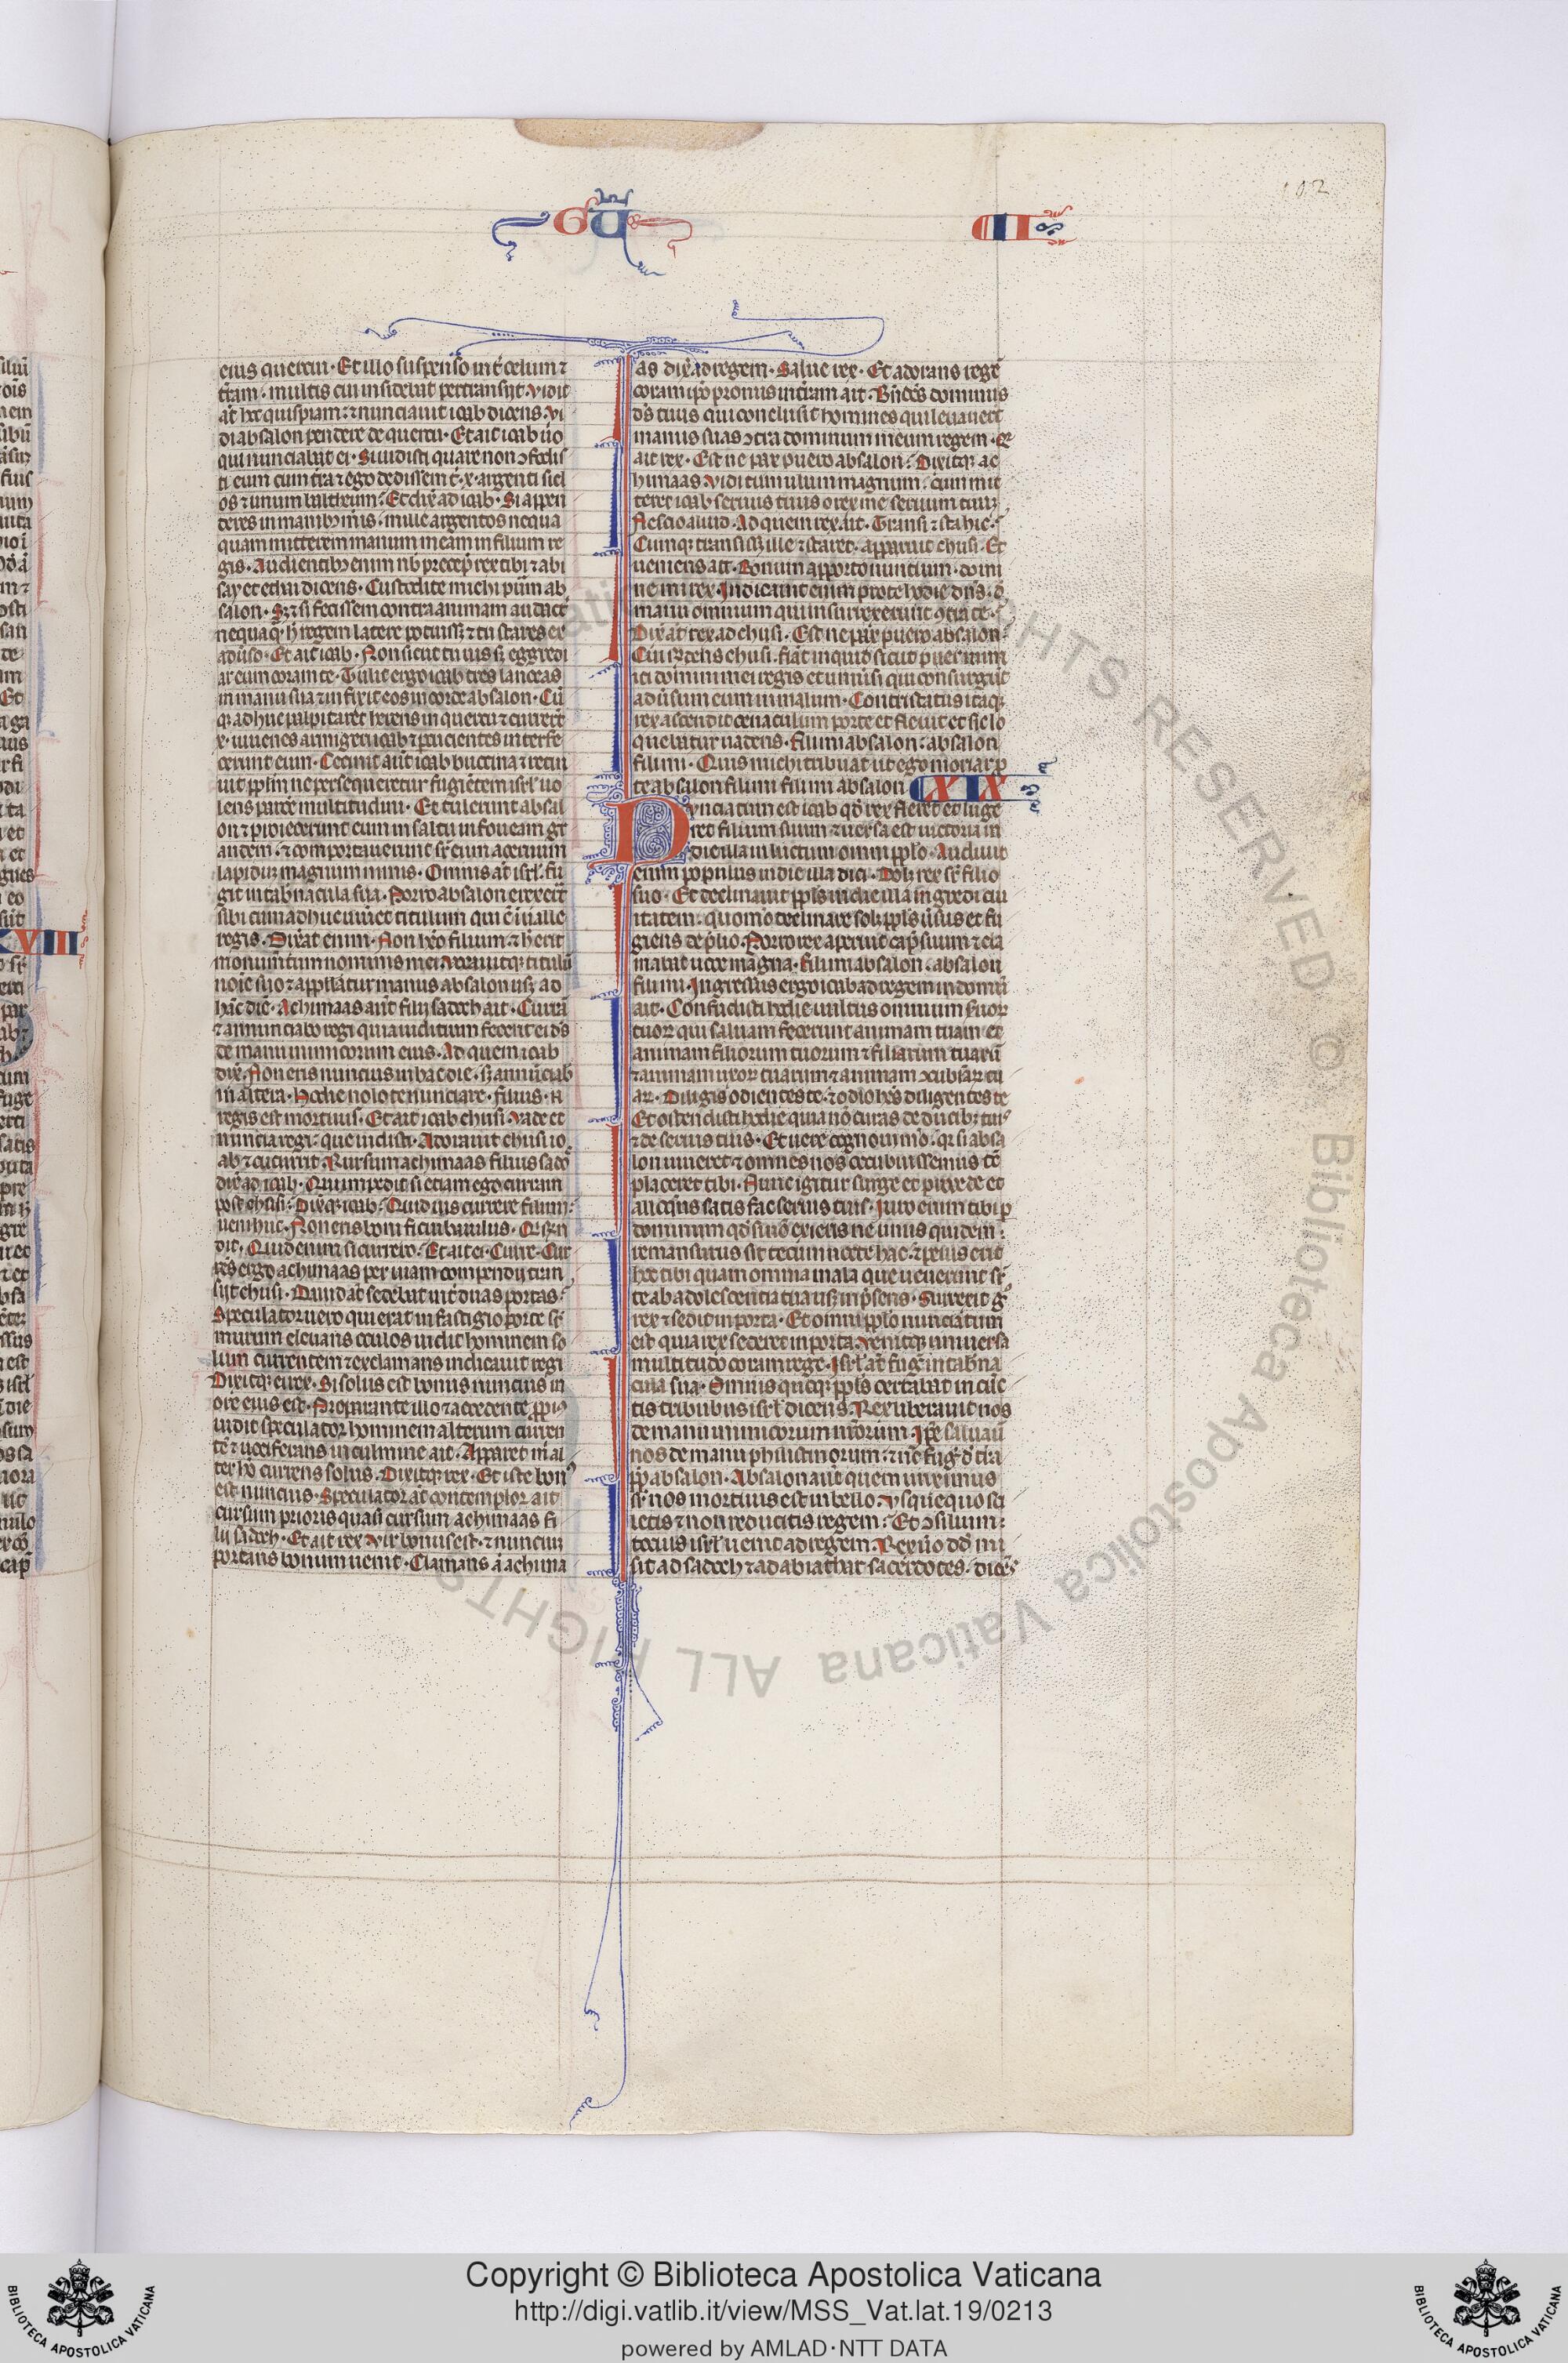 102
GU
II
eius quercui. Et illo suspenso int̄ celum ⁊
t̄ram. multis cui insidebat pertransijt. Vidit
at̄ hoc quispiam: ⁊ nunciauit ioab dicens. Vi
di absalon pendere de quercu. Et ait ioab uiro
qui nunciabat ei. Si uidisti quare non ↄfodis
ti eum cum t̄ra ⁊ ego dedissem t̄. x. argenti sicl
os ⁊ unum baltheum? Et dix̄ ad ioab. Si appen
deres in manibꝫ m̄is. mille argenteos nequa
quam mitterem manum meam in filium re
gis. Audientibꝫ enim nb̄ precep̄ rex tibi ⁊ abi
say et ethai dicens. Custodite michi pūm ab
salon. Sꝫ ⁊ si fecissem contra animam
nequaq̄ h̄ regem latere potuissꝫ ⁊ tu stares ex
aduso. Et ait ioab. Non sicut tu uis sꝫ aggredi
ar eum coram te. Tulit ergo ioab tres lanceas
in manu sua ⁊ infixit eos in corde absalon. Cū
qꝫ adhuc palpitaret herens in quercu ⁊ currerēt
x. iuuenes armigeri ioab ⁊ percucientes interfe
cerunt eum. Cecinit aūt ioab buccina ⁊ retin
uit pplm̄ ne persequeretur fugiētem isrl̄ uo
lens parcere multitudini. Et tulerunt absal
on ⁊ proiecerunt eum in saltu in foueam gr
andem. ⁊ comportauerunt sr̄ eum aceruum
lapidum magnum nimis. Omnis at̄ isrl̄. fu
git in tabn̄acula sua. Porro absalon erexerat
sibi cum adhuc uiuēt titulum qui ē ī ualle
regis. Dix̄at enim. Non h̄eo filium. ⁊ h̄ erit
monum̄tum nominis mei. Vocauitqꝫ titulū
noīe suo ⁊ appellatur manus absalon usqꝫ ad
hāc diē. Achimaas aūt fili sadoch ait. Currā
⁊ annunciabo regi quia iudicium fecerit ei dn̄s
de manu inimicorum eius. Ad quem ioab
dix̄. Non eris nuncius in hac die. sꝫ annūciab
in altera. Hodie nolo te nunciare. filius. n̄
regis est mortuus. Et ait ioab chusi. Vade et
nuncia regi: que uidisti. Adorauit chusi io
ab ⁊ cucurrit. Rursum achimaas filius sadoc
dix̄ ad ioab. Quid impedit si etiam ego curram
post chusi? Dixitqꝫ ioab. Quid uis currere fili mi:
ueni huc. Non eris boni nuncii baiulus. Qui rn̄
dit. Quid enim si currero. Et ait ei. Curre. Cur
rēs ergo achimaas per uiam compendij tran
sijt chusi. Dauid at̄ sedebat int̄ duas portas.
Speculator uero qui erat in fastigio porte sr̄
murum eleuans oculos uidit hominem so
lum currentem ⁊ exclamans indicauit regi
Dixitqꝫ ei rex. Si solus est bonus nuncius in
ore eius est. Properante illo ⁊ accedente ppiꝰ
uidit speculator hominem alterum curren
tē ⁊ uociferans in culmine ait. Apparet m̄ al
ter ho currens solus. Dixitqꝫ rex. Et iste bonꝰ
est nuncius. Speculator at̄ contemplor ait
cursum prioris quasi cursum achimaas fi
lij sadoch. Et ait rex. Vir bonus est. ⁊ nuncium
portans bonum uenit. Clamans ā achima
as dix̄ ad regem. Salue rex. Et adorans regē
coram ipo pronus in t̄ram ait. Bn̄dc̄s dominus
ds̄ tuus qui conclusit homines qui leuauert
manus suas ↄtra dominum meum regem. Et
ait rex. Est ne pax puero absalon? Dixitqꝫ ac
himaas. Vidi tumultum magnum. cum mit
teret ioab seruus tuus o rex me seruum tuū
Nescio aliud. Ad quem rex ait. Transi ⁊ sta hic.
Cumqꝫ transissꝫ ille ⁊ staret. apparuit chusi. Et
ueniens ait. Bonum apporto nuntium. domi
ne mi rex. Iudicauit enim pro te hodie dn̄s. d̄
manu omnium qui insurrexerunt ↄtra te.
Dix̄ at̄ rex ad chusi. Est ne pax puero absalon?
Cui rn̄dens chusi. fiat inquid sicut puer inim
ici domini mei regis et uniuersi qui consurgūt
aduersum eum in malum. Contristatus itaqꝫ
rex ascendit cenaculum porte et fleuit et sic lo
quebatur uadens. fili mi absalon: absalon
fili mi. Quis michi tribuat ut ego moriar p̄
te absalon fili mi fili mi absalon XIX
Nunciatum est ioab qd̄ rex fleret et luge
ret filium suum. ⁊ uersa est uictoria in
die illa in luctum omni pplo. Audiuit
enim populus in die illa dici. Dolꝫ rex sr̄ filio
suo. Et declinauit ppls̄ in die illa ingredi ciu
itatem: quomō declinare solꝫ ppls̄ uersus et fu
giens de p̄lio. Porro rex aperuit cap̄ suum ⁊ cla
mabat uoce magna. Fili mi absalon. absalon
fili mi. Ingressus ergo ioab ad regem in domū
ait. Confudisti hodie uultus omnium seruoꝝ
tuoꝝ qui saluam fecerunt animam tuam et
animam filiorum tuorum ⁊ filiarum tuarū
⁊ animam uxoꝝ tuarum ⁊ animam ↄcubinaꝝ tu
aꝝ. Diligis odientes te. ⁊ odio hēs diligentes te
Et ostendisti hodie quia nō curas de ducibꝫ tuiꝰ
⁊ de seruis tuis. Et uere cognoui mō. qꝫ si absa
lon uiueret ⁊ omnes nos occubuissemus tc̄
placeret tibi. Nunc igitur surge et procede et
alloquens satis fac seruis tuis. Iuro enim tibi p
dominum qd̄ si nō exieris ne unus quidem:
remansurus sit tecum nocte hac. ⁊ peius erit
hoc tibi quam omnia mala que uenerunt sr̄
te ab adolescentia tua usqꝫ in p̄sens. Surrexit gͦ
rex ⁊ sedit in porta. Et omni pplo nunciatum
est quia rex sederet in porta. Venitqꝫ uniuersa
multitudo coram rege. Isrl̄ at̄ fugit in tabn̄a
cula sua. Omnis quoqꝫ ppls̄ certabat in cūc
tis tribubus isrl̄ dicens. Rex liberauit nos
de manu inimicorum nr̄orum. Ipe saluauit
nos de manu philistinorum: ⁊ nc̄ fuḡ d̄ t̄ra
pp̄ absalon. Absalon aūt quem unximus
sr̄ nos mortuus est in bello. Vsquequo sil
etis ⁊ non reducitis regem? Et ↄsilium:
tocius isrl̄ uenit ad regem. Rex ūo dd̄ mi
sit ad sadoch ⁊ ad abiathar sacerdotes. dicēs
XVIII
Copyright © Biblioteca Apostolica Vaticana
http://digi.vatlib.it/view/MSS_Vat.lat.19/0213
powered by AMLAD·NTT DATA
BIBLIOTECA APOSTOLICA VATICANA
BIBLIOTECA APOSTOLICA VATICANA
ALL RIGHTS RESERVED © Biblioteca Apostolica Vaticana